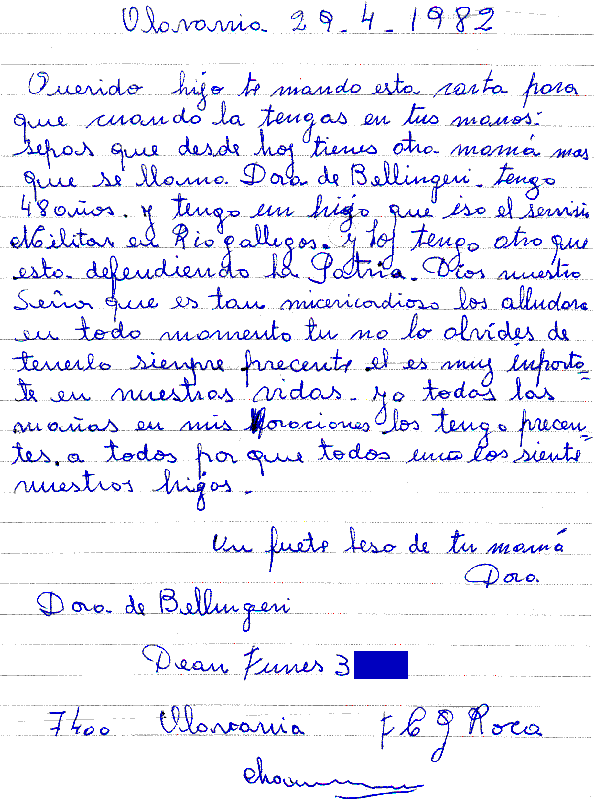 Olavarria 29-4-1982
Querido hijo te mando esta carta para
que cuando la tengas en tus manos:
sepas que desde hoy tienes otra mamá mas
que se llama Dora de Bellingeri. tengo
48 años. y tengo un higo que iso el servisio
Militar en Rio gallegos. y hoy tengo otro que
esta defendiendo la Patria. Dios nuestro
Señor que es tan micericordioso los alludara
en todo momento tu no lo olvides de
tenerlo siempre precente el es muy inporta-
te en nuestras vidas. yo todas las
mañas en mis oraciones los tengo precen-
tes. a todos por que todos uno los siente
nuestros higos.
Un fuete beso de tu mamá
Dora
Dora de Bellingeri
Dean Funes 3
7400 Olavarria F C G Roca
chau